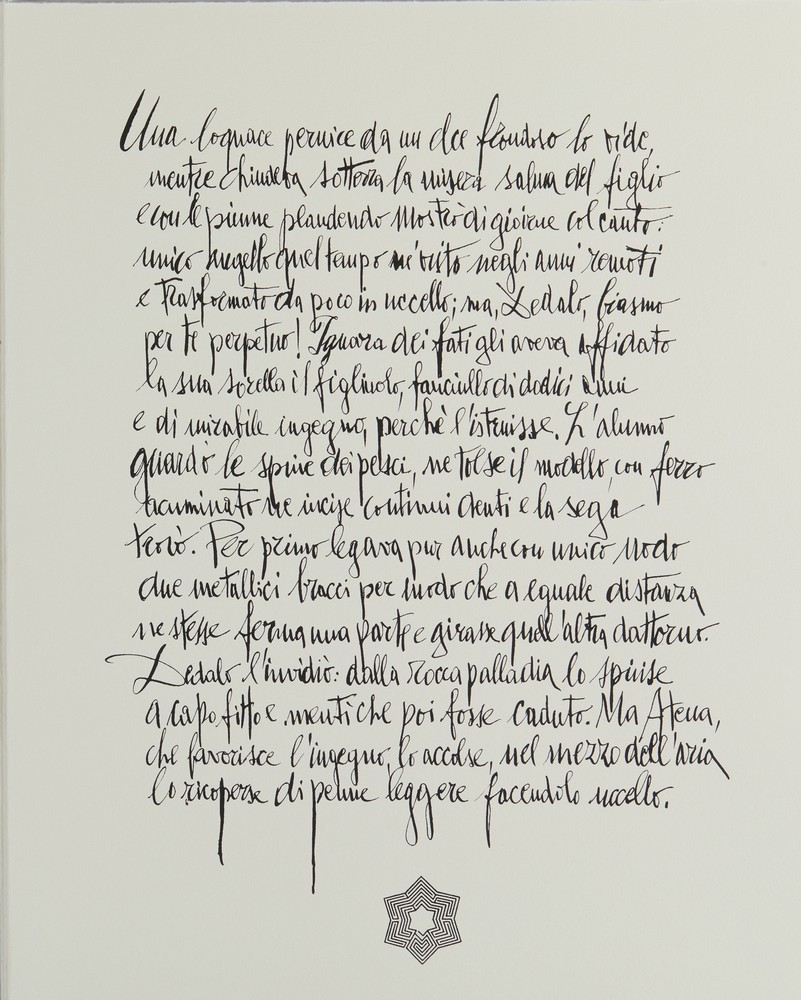 Una loquace pernice da un elce frondoso lo vide,
mentre chiudeva sotterra la misera salma del figlio
e con le piume plaudendo mostrò di gioirne col canto:
unico augello quel tempo né visto negli anni remoti
e trasformato da poco in uccello; ma, Dedalo, biasmo
per te perpetuo! Ignara dei fati gli aveva affidato
la sua sorella il figliuolo, fanciullo di dodici anni
e di mirabile ingegno, perchè l'istruisse. L'alunno
guardò le spine dei pesci, ne tolse il modello, con ferro
acuminato ne incise continui denti e la sega
trovò. Per primo legava pur anche con unico nodo
due metallici bracci per modo che a eguale distanza
ne stesse ferma una parte e girasse quell'altra dattorno.
Dedalo l'invidiò: dalla rocca palladia lo spinse
a capofitto e mentì che poi fosse caduto. Ma Atena,
che favorisce l'ingegno, lo accolse, nel mezzo dell'aria
lo ricoperse di penne leggere facendolo uccello.